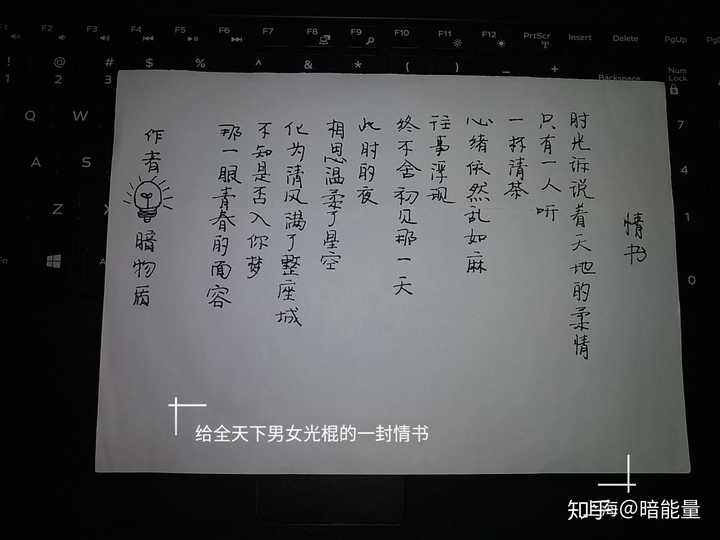 情书
时光诉说着天地的柔情
只有一人听
一杯清茶
心绪依然乱如麻
往事浮现
终不舍初见那一天
此时的夜
相思温柔了星空
化为清风满了整座城
不知是否入你梦
那一眼青春的面容
作者
暗物质
给全天下男女光棍的一封情书
知乎 @暗能量
F2
F3
F4
F5
F6
F7
F8
F9
F10
F11
F12
PrtScr
Insert
Delete
PgUp
PgDn
! @ # $ % ^ & * ( ) _ +
1 2 3
Backspace
Num Lock
Q W
7
A S
4
Z
1
Fn
0